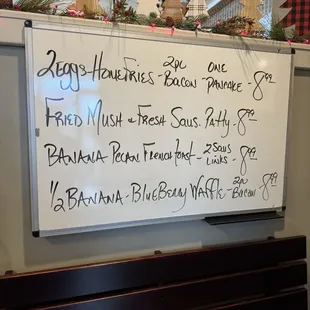 2 Eggs-Home Fries-2pc Bacon-One Pancake-8⁹⁹
Fried Mush & Fresh Saus. Patty-8⁹⁹
Banana Pecan French Toast-2 Saus Links-8⁹⁹
½ Banana-BlueBerry Waffle-2pc Bacon 8⁹⁹